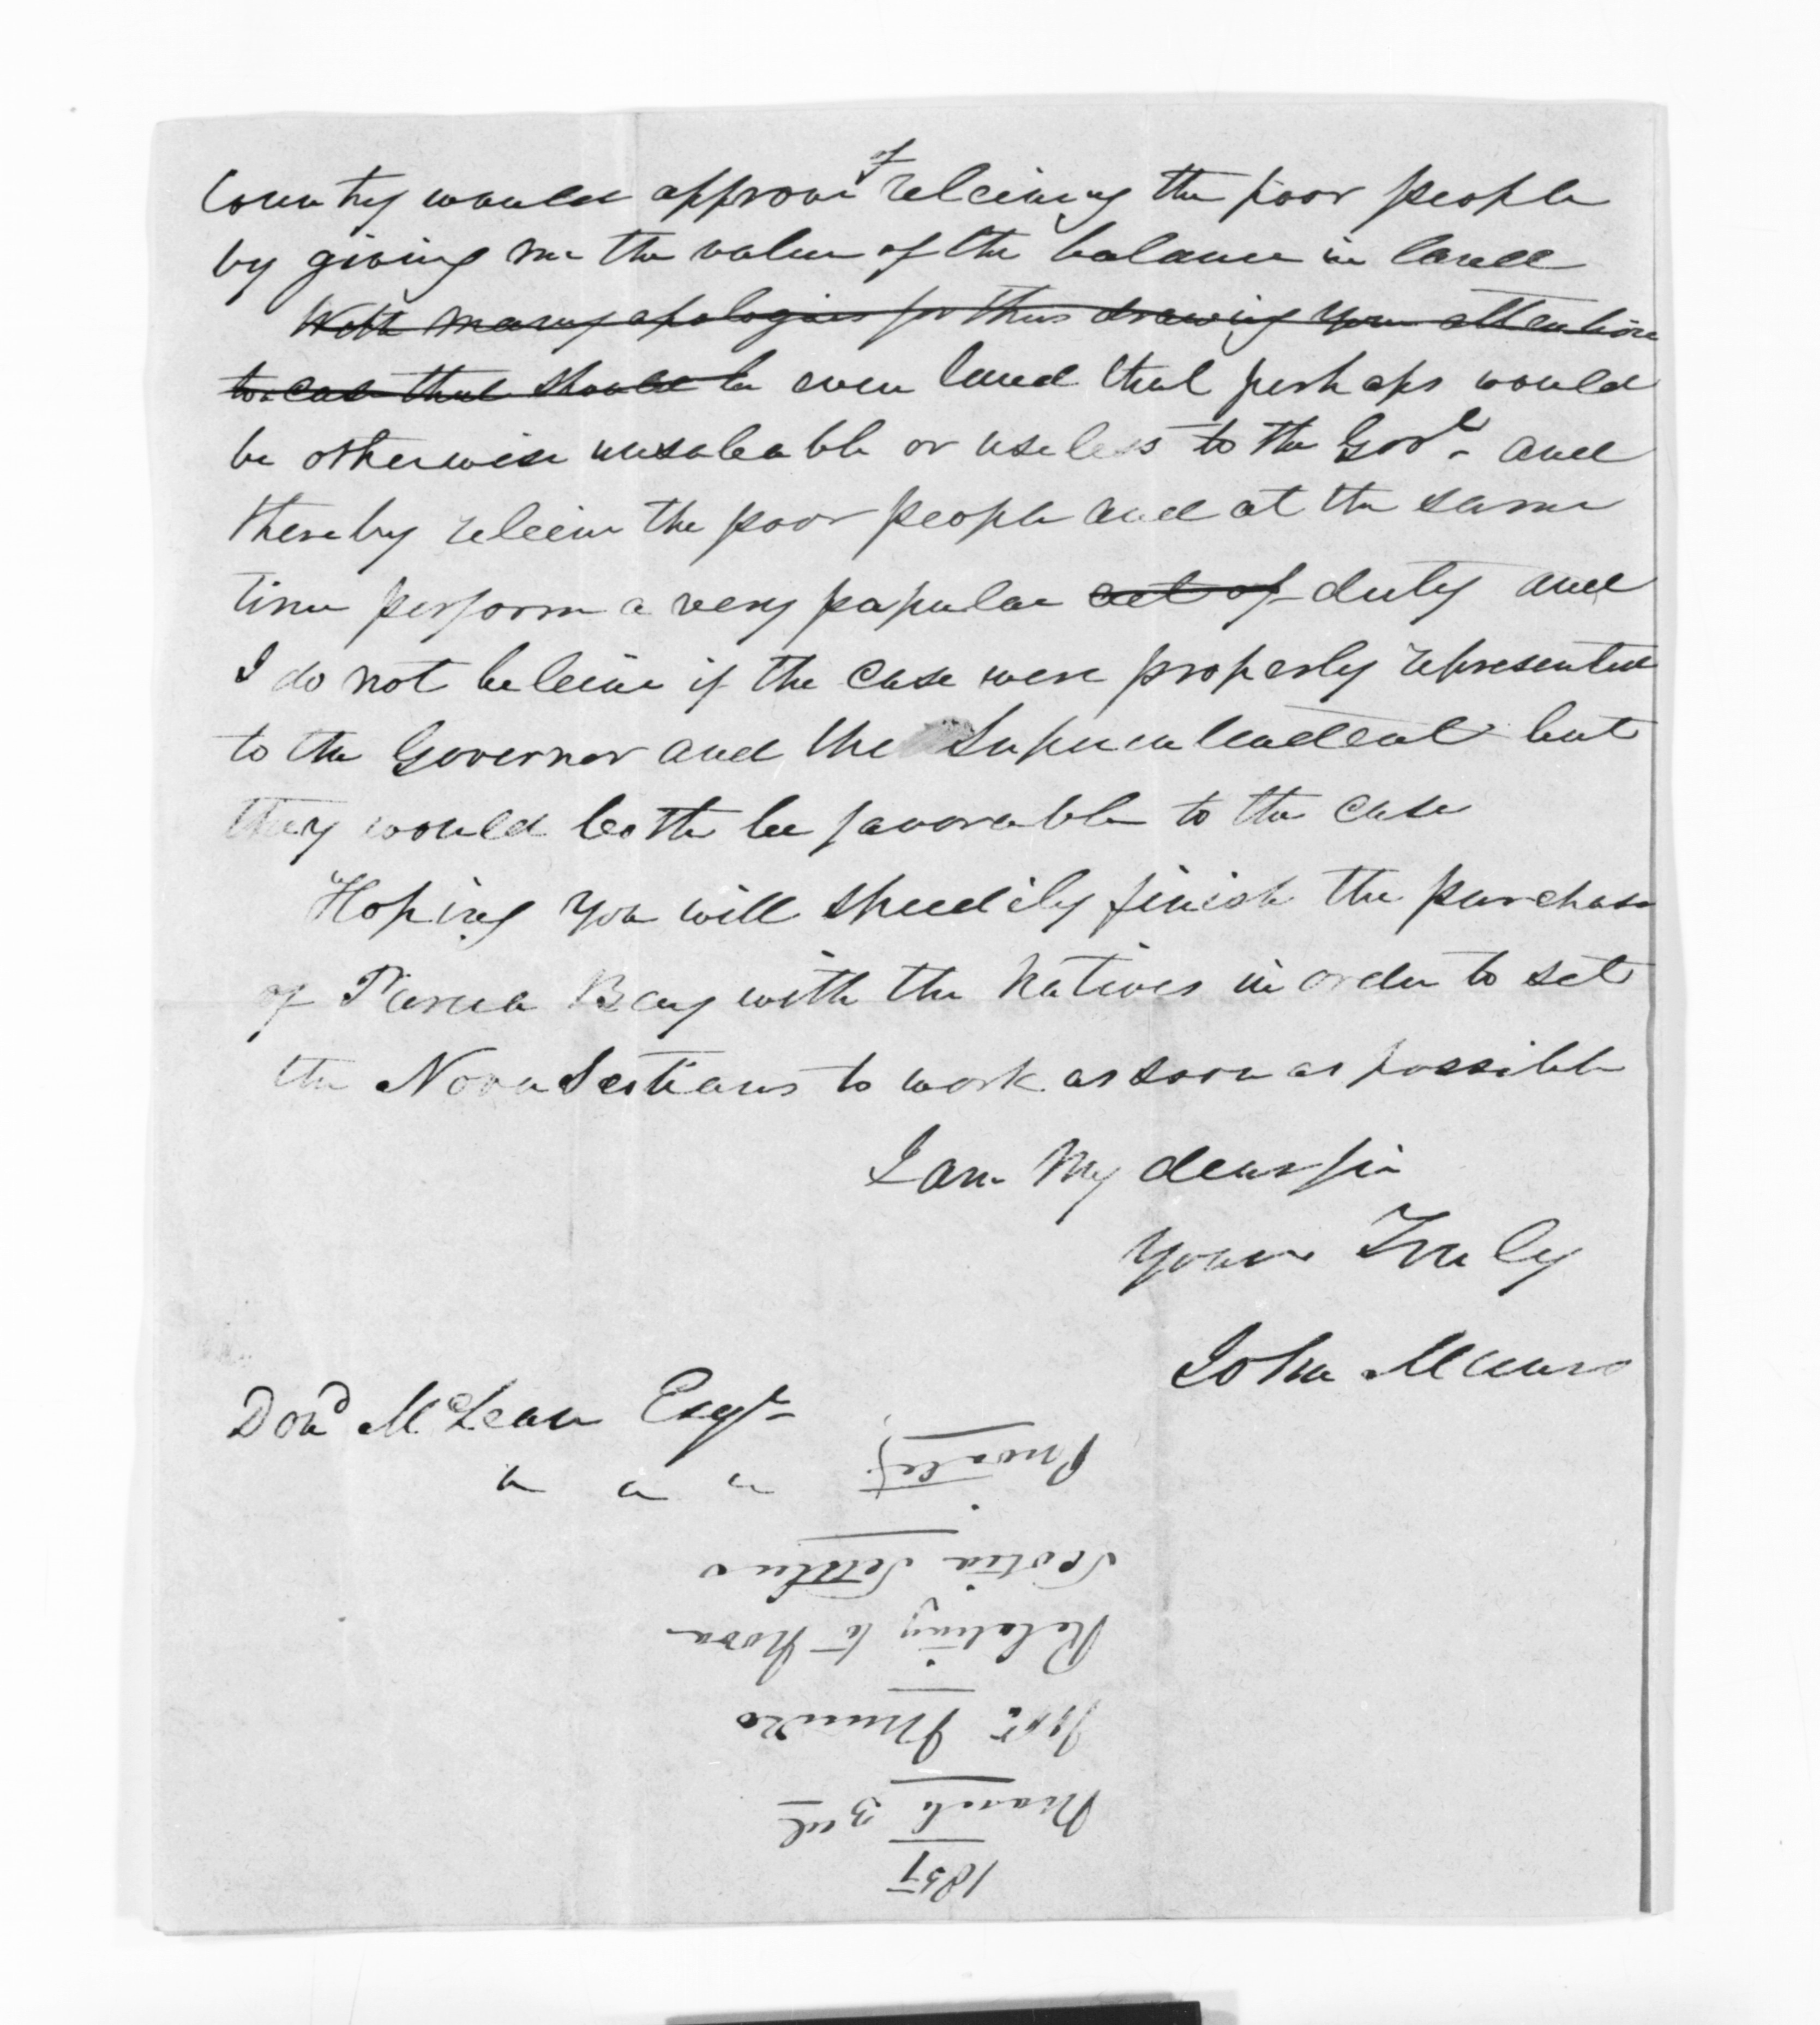 Country would approve of releiving the poor people
by giving me the value of the balance in land
With many apologies for thus drawing your attention
to a case that should be even land that perhaps would
be otherwise unsaleable or useless to the Govt. and
thereby releive the poor people and at the same
time perform a very popular act of duty and
I do not beleive if the case were properly represented
to the Governor and the Superintendent but
they would both be favorable to the case
Hoping you will speedily finish the purchase
of Parua Bay with the Natives in order to set
the Nova Scotians to work as soon as possible
I am My dear Sir
Yours Truly
John Munro
Dond McLean Esqr
" " "
Private
1857
March 3rd
Jno. Munro
Relating to Nova
Scotia Settlers